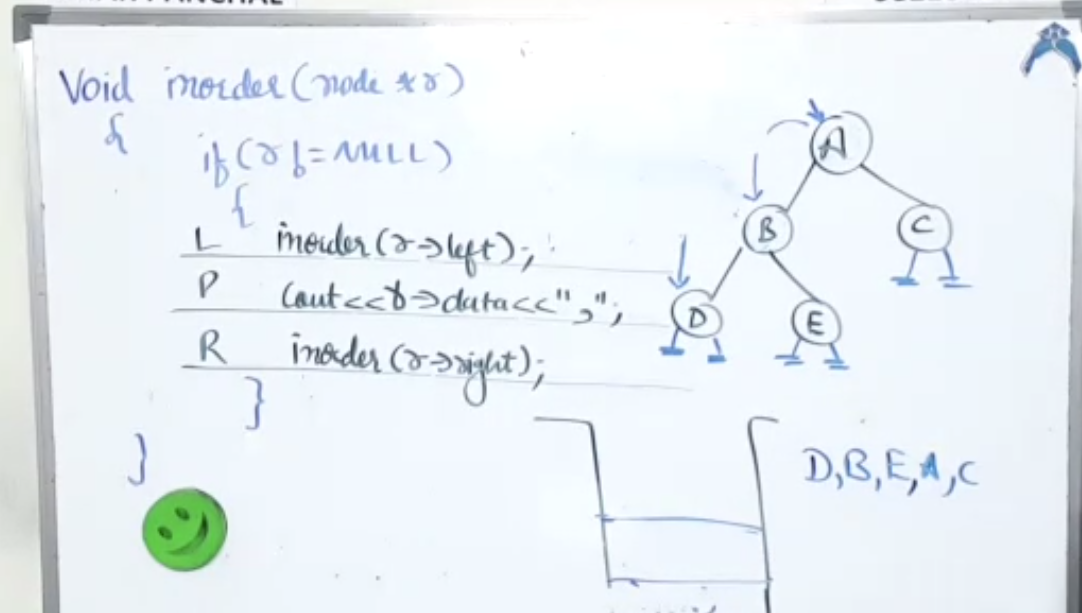 Void inorder(node *r)
{
if(r != NULL)
{
L inorder(r->left);
P Cout<<r->data<<",";
R inorder(r->right);
}
}
A
B
C
D
E
D,B,E,A,C